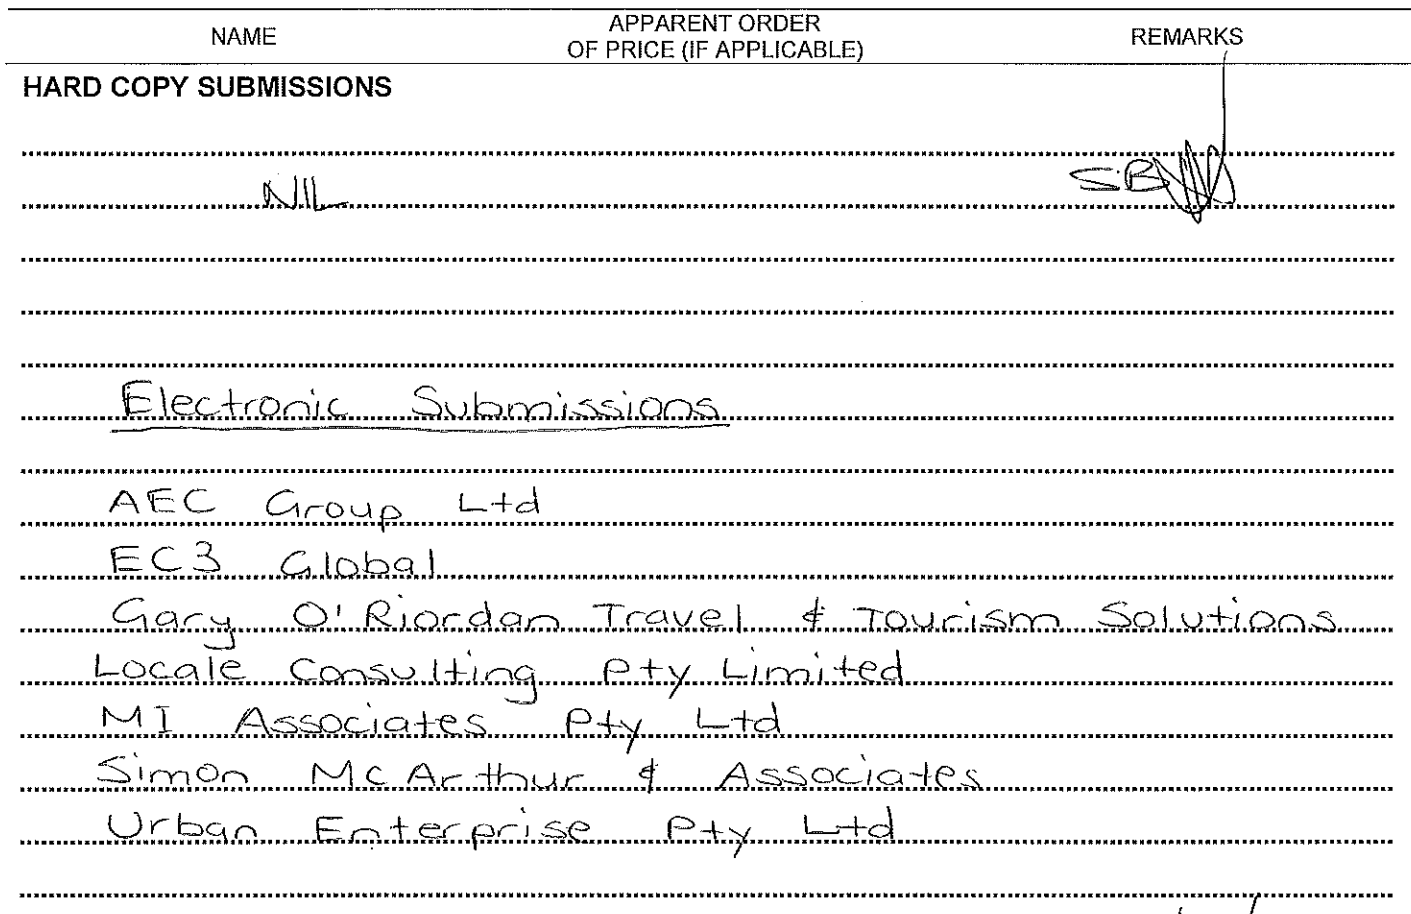 NAME APPARENT ORDER OF PRICE (IF APPLICABLE) REMARKS
HARD COPY SUBMISSIONS
NIL SB
Electronic Submissions
AEC Group Ltd
EC3 Global
Gary O'Riordan Travel & Tourism Solutions
Locale Consulting Pty Limited
MI Associates Pty Ltd
Simon McArthur & Associates
Urban Enterprise Pty Ltd